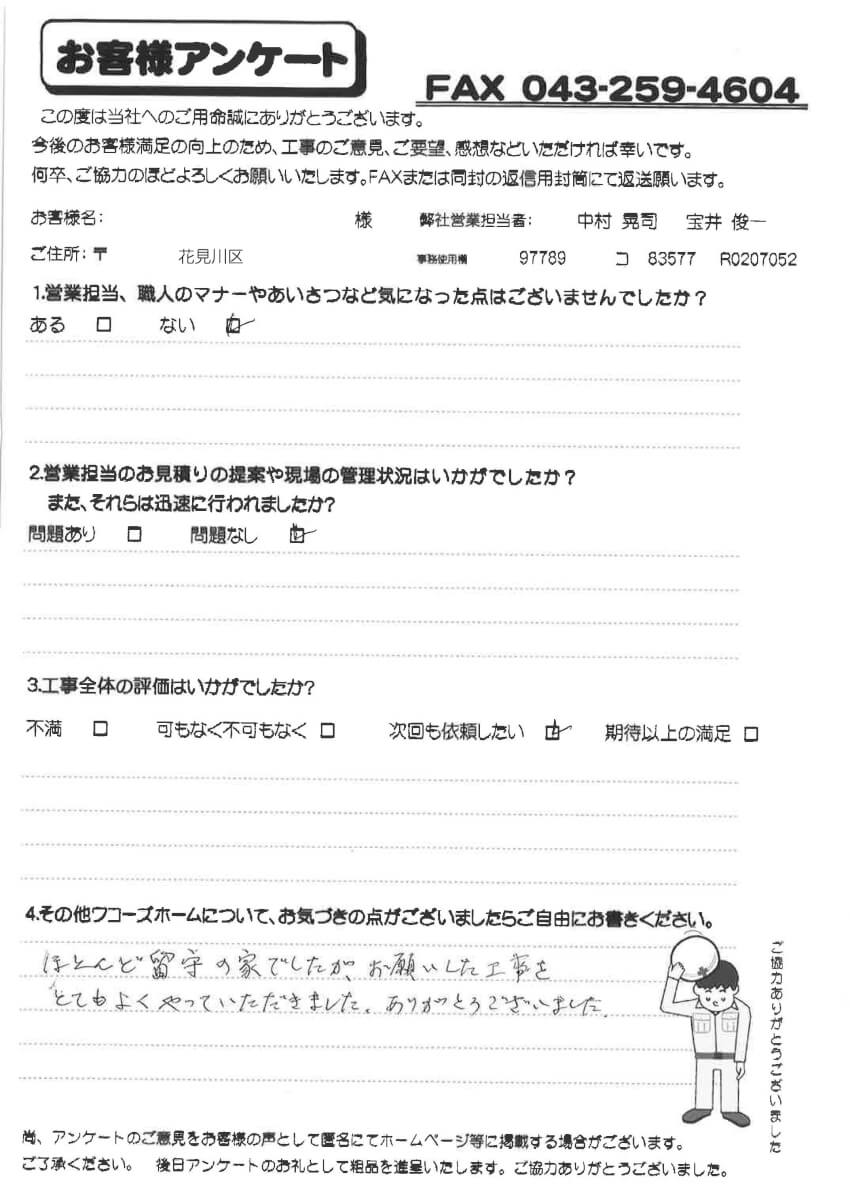 お客様アンケート
FAX 043-259-4604
この度は当社へのご用命誠にありがとうございます。
今後のお客様満足の向上のため、工事のご意見、ご要望、感想などいただければ幸いです。
何卒、ご協力のほどよろしくお願いいたします。FAXまたは同封の返信用封筒にて返送願います。
お客様名: 様 弊社営業担当者: 中村 晃司 宝井 俊一
ご住所:〒 花見川区 事務使用欄 97789 コ 83577 R0207052
1.営業担当、職人のマナーやあいさつなど気になった点はございませんでしたか?
ある □ ない ☑
2.営業担当のお見積りの提案や現場の管理状況はいかがでしたか?
また、それらは迅速に行われましたか?
問題あり □ 問題なし ☑
3.工事全体の評価はいかがでしたか?
不満 □ 可もなく不可もなく □ 次回も依頼したい ☑ 期待以上の満足 □
4.その他ワコーズホームについて、お気づきの点がございましたらご自由にお書きください。
ほとんど留守の家でしたが、お願いした工事を
とてもよくやっていただきました。ありがとうございました。
ご協力ありがとうございました
尚、アンケートのご意見をお客様の声として匿名にてホームページ等に掲載する場合がございます。
ご了承ください。 後日アンケートのお礼として粗品を進呈いたします。ご協力ありがとうございました。